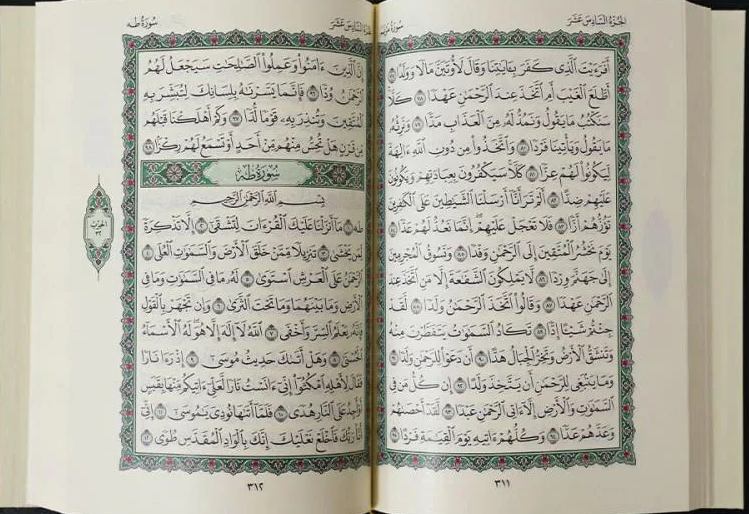 الجزء السادس عشر
سورة مريم
أَفَرَءَيْتَ ٱلَّذِى كَفَرَ بِـَٔايَـٰتِنَا وَقَالَ لَأُوتَيَنَّ مَالًا وَوَلَدًا ٧٧
أَطَّلَعَ ٱلْغَيْبَ أَمِ ٱتَّخَذَ عِندَ ٱلرَّحْمَـٰنِ عَهْدًا ٧٨ كَلَّا
سَنَكْتُبُ مَا يَقُولُ وَنَمُدُّ لَهُۥ مِنَ ٱلْعَذَابِ مَدًّا ٧٩ وَنَرِثُهُۥ
مَا يَقُولُ وَيَأْتِينَا فَرْدًا ٨٠ وَٱتَّخَذُوا۟ مِن دُونِ ٱللَّهِ ءَالِهَةً
لِّيَكُونُوا۟ لَهُمْ عِزًّا ٨١ كَلَّا سَيَكْفُرُونَ بِعِبَادَتِهِمْ وَيَكُونُونَ
عَلَيْهِمْ ضِدًّا ٨٢ أَلَمْ تَرَ أَنَّآ أَرْسَلْنَا ٱلشَّيَـٰطِينَ عَلَى ٱلْكَـٰفِرِينَ
تَؤُزُّهُمْ أَزًّا ٨٣ فَلَا تَعْجَلْ عَلَيْهِمْ إِنَّمَا نَعُدُّ لَهُمْ عَدًّا ٨٤
يَوْمَ نَحْشُرُ ٱلْمُتَّقِينَ إِلَى ٱلرَّحْمَـٰنِ وَفْدًا ٨٥ وَنَسُوقُ ٱلْمُجْرِمِينَ
إِلَىٰ جَهَنَّمَ وِرْدًا ٨٦ لَّا يَمْلِكُونَ ٱلشَّفَـٰعَةَ إِلَّا مَنِ ٱتَّخَذَ عِندَ
ٱلرَّحْمَـٰنِ عَهْدًا ٨٧ وَقَالُوا۟ ٱتَّخَذَ ٱلرَّحْمَـٰنُ وَلَدًا ٨٨ لَّقَدْ
جِئْتُمْ شَيْـًٔا إِدًّا ٨٩ تَكَادُ ٱلسَّمَـٰوَٰتُ يَتَفَطَّرْنَ مِنْهُ
وَتَنشَقُّ ٱلْأَرْضُ وَتَخِرُّ ٱلْجِبَالُ هَدًّا ٩٠ أَن دَعَوْا۟ لِلرَّحْمَـٰنِ وَلَدًا ٩١
وَمَا يَنۢبَغِى لِلرَّحْمَـٰنِ أَن يَتَّخِذَ وَلَدًا ٩٢ إِن كُلُّ مَن فِى
ٱلسَّمَـٰوَٰتِ وَٱلْأَرْضِ إِلَّآ ءَاتِى ٱلرَّحْمَـٰنِ عَبْدًا ٩٣ لَّقَدْ أَحْصَىٰهُمْ
وَعَدَّهُمْ عَدًّا ٩٤ وَكُلُّهُمْ ءَاتِيهِ يَوْمَ ٱلْقِيَـٰمَةِ فَرْدًا ٩٥
٣١١
الجزء السادس عشر
سورة طه
إِنَّ ٱلَّذِينَ ءَامَنُوا۟ وَعَمِلُوا۟ ٱلصَّـٰلِحَـٰتِ سَيَجْعَلُ لَهُمُ
ٱلرَّحْمَـٰنُ وُدًّا ٩٦ فَإِنَّمَا يَسَّرْنَـٰهُ بِلِسَانِكَ لِتُبَشِّرَ بِهِ
ٱلْمُتَّقِينَ وَتُنذِرَ بِهِۦ قَوْمًا لُّدًّا ٩٧ وَكَمْ أَهْلَكْنَا قَبْلَهُم
مِّن قَرْنٍ هَلْ تُحِسُّ مِنْهُم مِّنْ أَحَدٍ أَوْ تَسْمَعُ لَهُمْ رِكْزًۢا ٩٨
سُورَةُ طه
بِسْمِ ٱللَّهِ ٱلرَّحْمَـٰنِ ٱلرَّحِيمِ
طه ١ مَآ أَنزَلْنَا عَلَيْكَ ٱلْقُرْءَانَ لِتَشْقَىٰٓ ٢ إِلَّا تَذْكِرَةً
لِّمَن يَخْشَىٰ ٣ تَنزِيلًا مِّمَّنْ خَلَقَ ٱلْأَرْضَ وَٱلسَّمَـٰوَٰتِ ٱلْعُلَى ٤
ٱلرَّحْمَـٰنُ عَلَى ٱلْعَرْشِ ٱسْتَوَىٰ ٥ لَهُۥ مَا فِى ٱلسَّمَـٰوَٰتِ وَمَا فِى
ٱلْأَرْضِ وَمَا بَيْنَهُمَا وَمَا تَحْتَ ٱلثَّرَىٰ ٦ وَإِن تَجْهَرْ بِٱلْقَوْلِ
فَإِنَّهُۥ يَعْلَمُ ٱلسِّرَّ وَأَخْفَى ٧ ٱللَّهُ لَآ إِلَـٰهَ إِلَّا هُوَ لَهُ ٱلْأَسْمَآءُ
ٱلْحُسْنَىٰ ٨ وَهَلْ أَتَىٰكَ حَدِيثُ مُوسَىٰٓ ٩ إِذْ رَءَا نَارًا
فَقَالَ لِأَهْلِهِ ٱمْكُثُوٓا۟ إِنِّىٓ ءَانَسْتُ نَارًا لَّعَلِّىٓ ءَاتِيكُم مِّنْهَا بِقَبَسٍ
أَوْ أَجِدُ عَلَى ٱلنَّارِ هُدًى ١٠ فَلَمَّآ أَتَىٰهَا نُودِىَ يَـٰمُوسَىٰٓ ١١ إِنِّىٓ
أَنَا۠ رَبُّكَ فَٱخْلَعْ نَعْلَيْكَ إِنَّكَ بِٱلْوَادِ ٱلْمُقَدَّسِ طُوًى ١٢
الحزب
٣٢
٣١٢